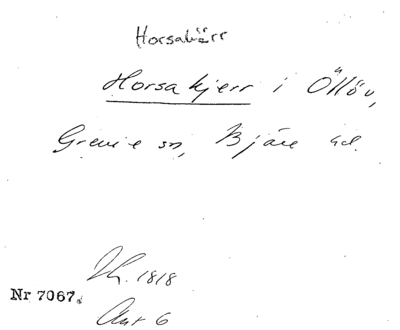 Horsakärr
Horsakjerr i Öllöv,
Grevie sn, Bjäre hd.
Lh. 1818
Nr 7067.
Akt 6